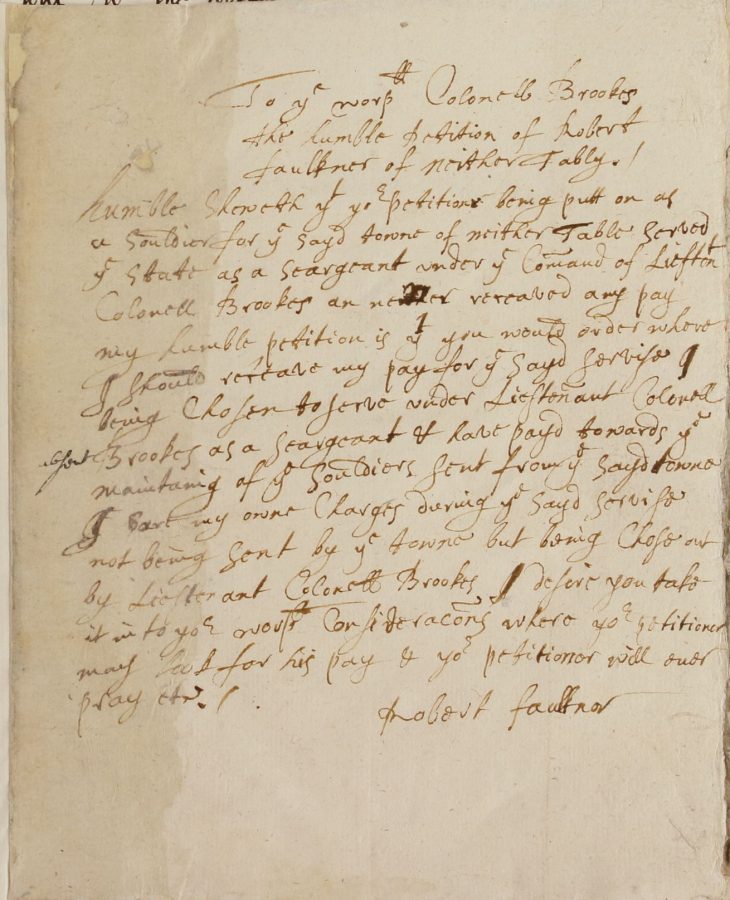 To ye worpll Colonell Brookes
the humble Petition of Robert
Faulkner of neither Tably. /
Humble Sheweth yt yor petitioner being putt on as
a Souldier for ye sayd towne of neither Table served
ye State as a Seargeant under ye Comand of Liestent
Colonell Brookes an never receaved any pay
my humble petition is yt you would order where
I should receave my pay for ye sayd servise I
being Chosen to serve under Liestenant Colonell
Brookes as a Seargeant & have payd towards ye
maintaing of ye Souldiers sent from ye sayd towne
I bare my owne Charges during ye sayd servise
not being sent by ye towne but being Chose out
by Liestenant Colonell Brookes I desire you take
it in to yor worps Consideracons where yor petitioner
may look for his pay & yor petitioner will ever
pray etc. /
Robert Faulknor